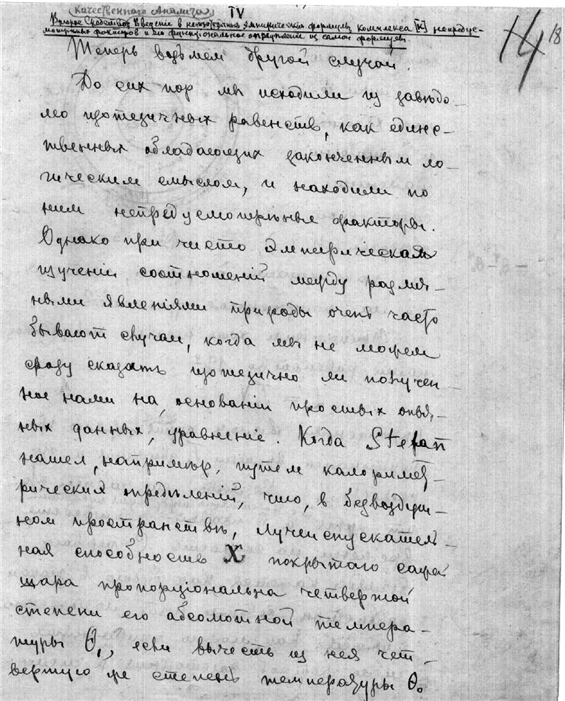 Качественного Анализа
IV
Второе Свойство Введение в неизотропные эмпирических формулах комплекса [K] непредус-
мотренных факторов и его функциональное определение из самой формулы
14 18
Теперь возьмем другой случай.
До сих пор мы исходили из завѣдо-
мо изотезичных равенств, как единс-
твенных обладающих законченным ло-
гическим смыслом, и находили по
ним непредусмотрѣнные факторы.
Однако при чисто эмпирическом
изученіи соотношеній между различ-
ными явленіями природы очень часто
бывают случаи, когда мы не можем
сразу сказать изотезично ли получен-
ное нами на основаніи простых опыт-
ных данных, уравненіе. Когда Stefan
нашел, напримѣр, путем калоримет-
рических опредѣленій, что, в безвоздуш-
ном пространствѣ, лучеиспускатель-
ная способность X покрытаго сажей
шара пропорціональна четвертой
степени его абсолютной темпера-
туры θ₁, если вычесть из нея чет-
вертую же степень температуры θ₀